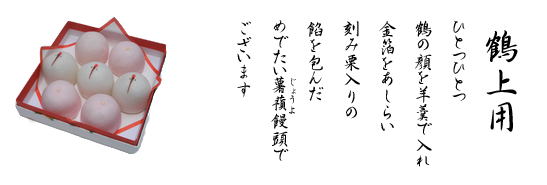 鶴上用
ひとつひとつ
鶴の顔を羊羹で入れ
金箔をあしらい
刻み栗入りの
餡を包んだ
めでたい薯蕷饅頭で
じょうよ
ございます